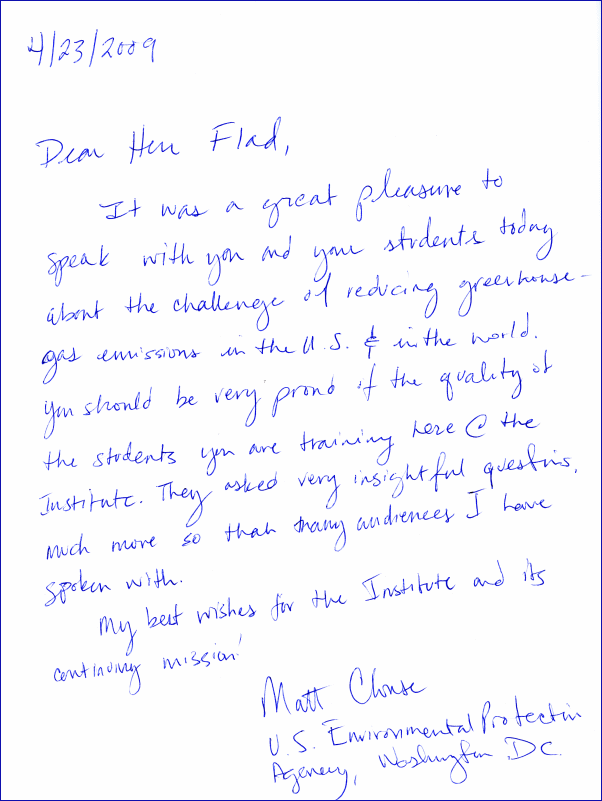 4/23/2009
Dear Herr Flad,
It was a great pleasure to
speak with you and your students today
about the challenge of reducing greenhouse-
gas emissions in the U.S. & in the world.
You should be very proud of the quality of
the students you are training here @ the
Institute. They asked very insightful questions,
much more so than many audiences I have
spoken with.
My best wishes for the Institute and its
continuing mission!
Matt
U.S. Environmental Protection
Agency, Washington D.C.